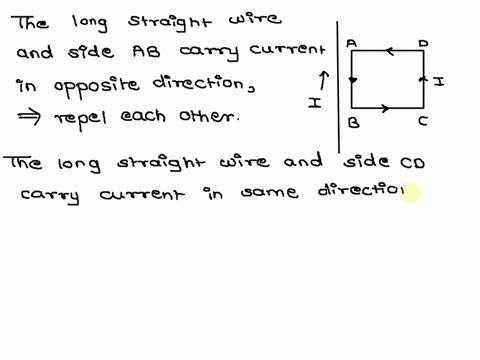 The long straight wire
and side AB carry current
in opposite direction,
⇒ repel each other.
A D
I I
B C
The long straight wire and side CD
carry current in same direction